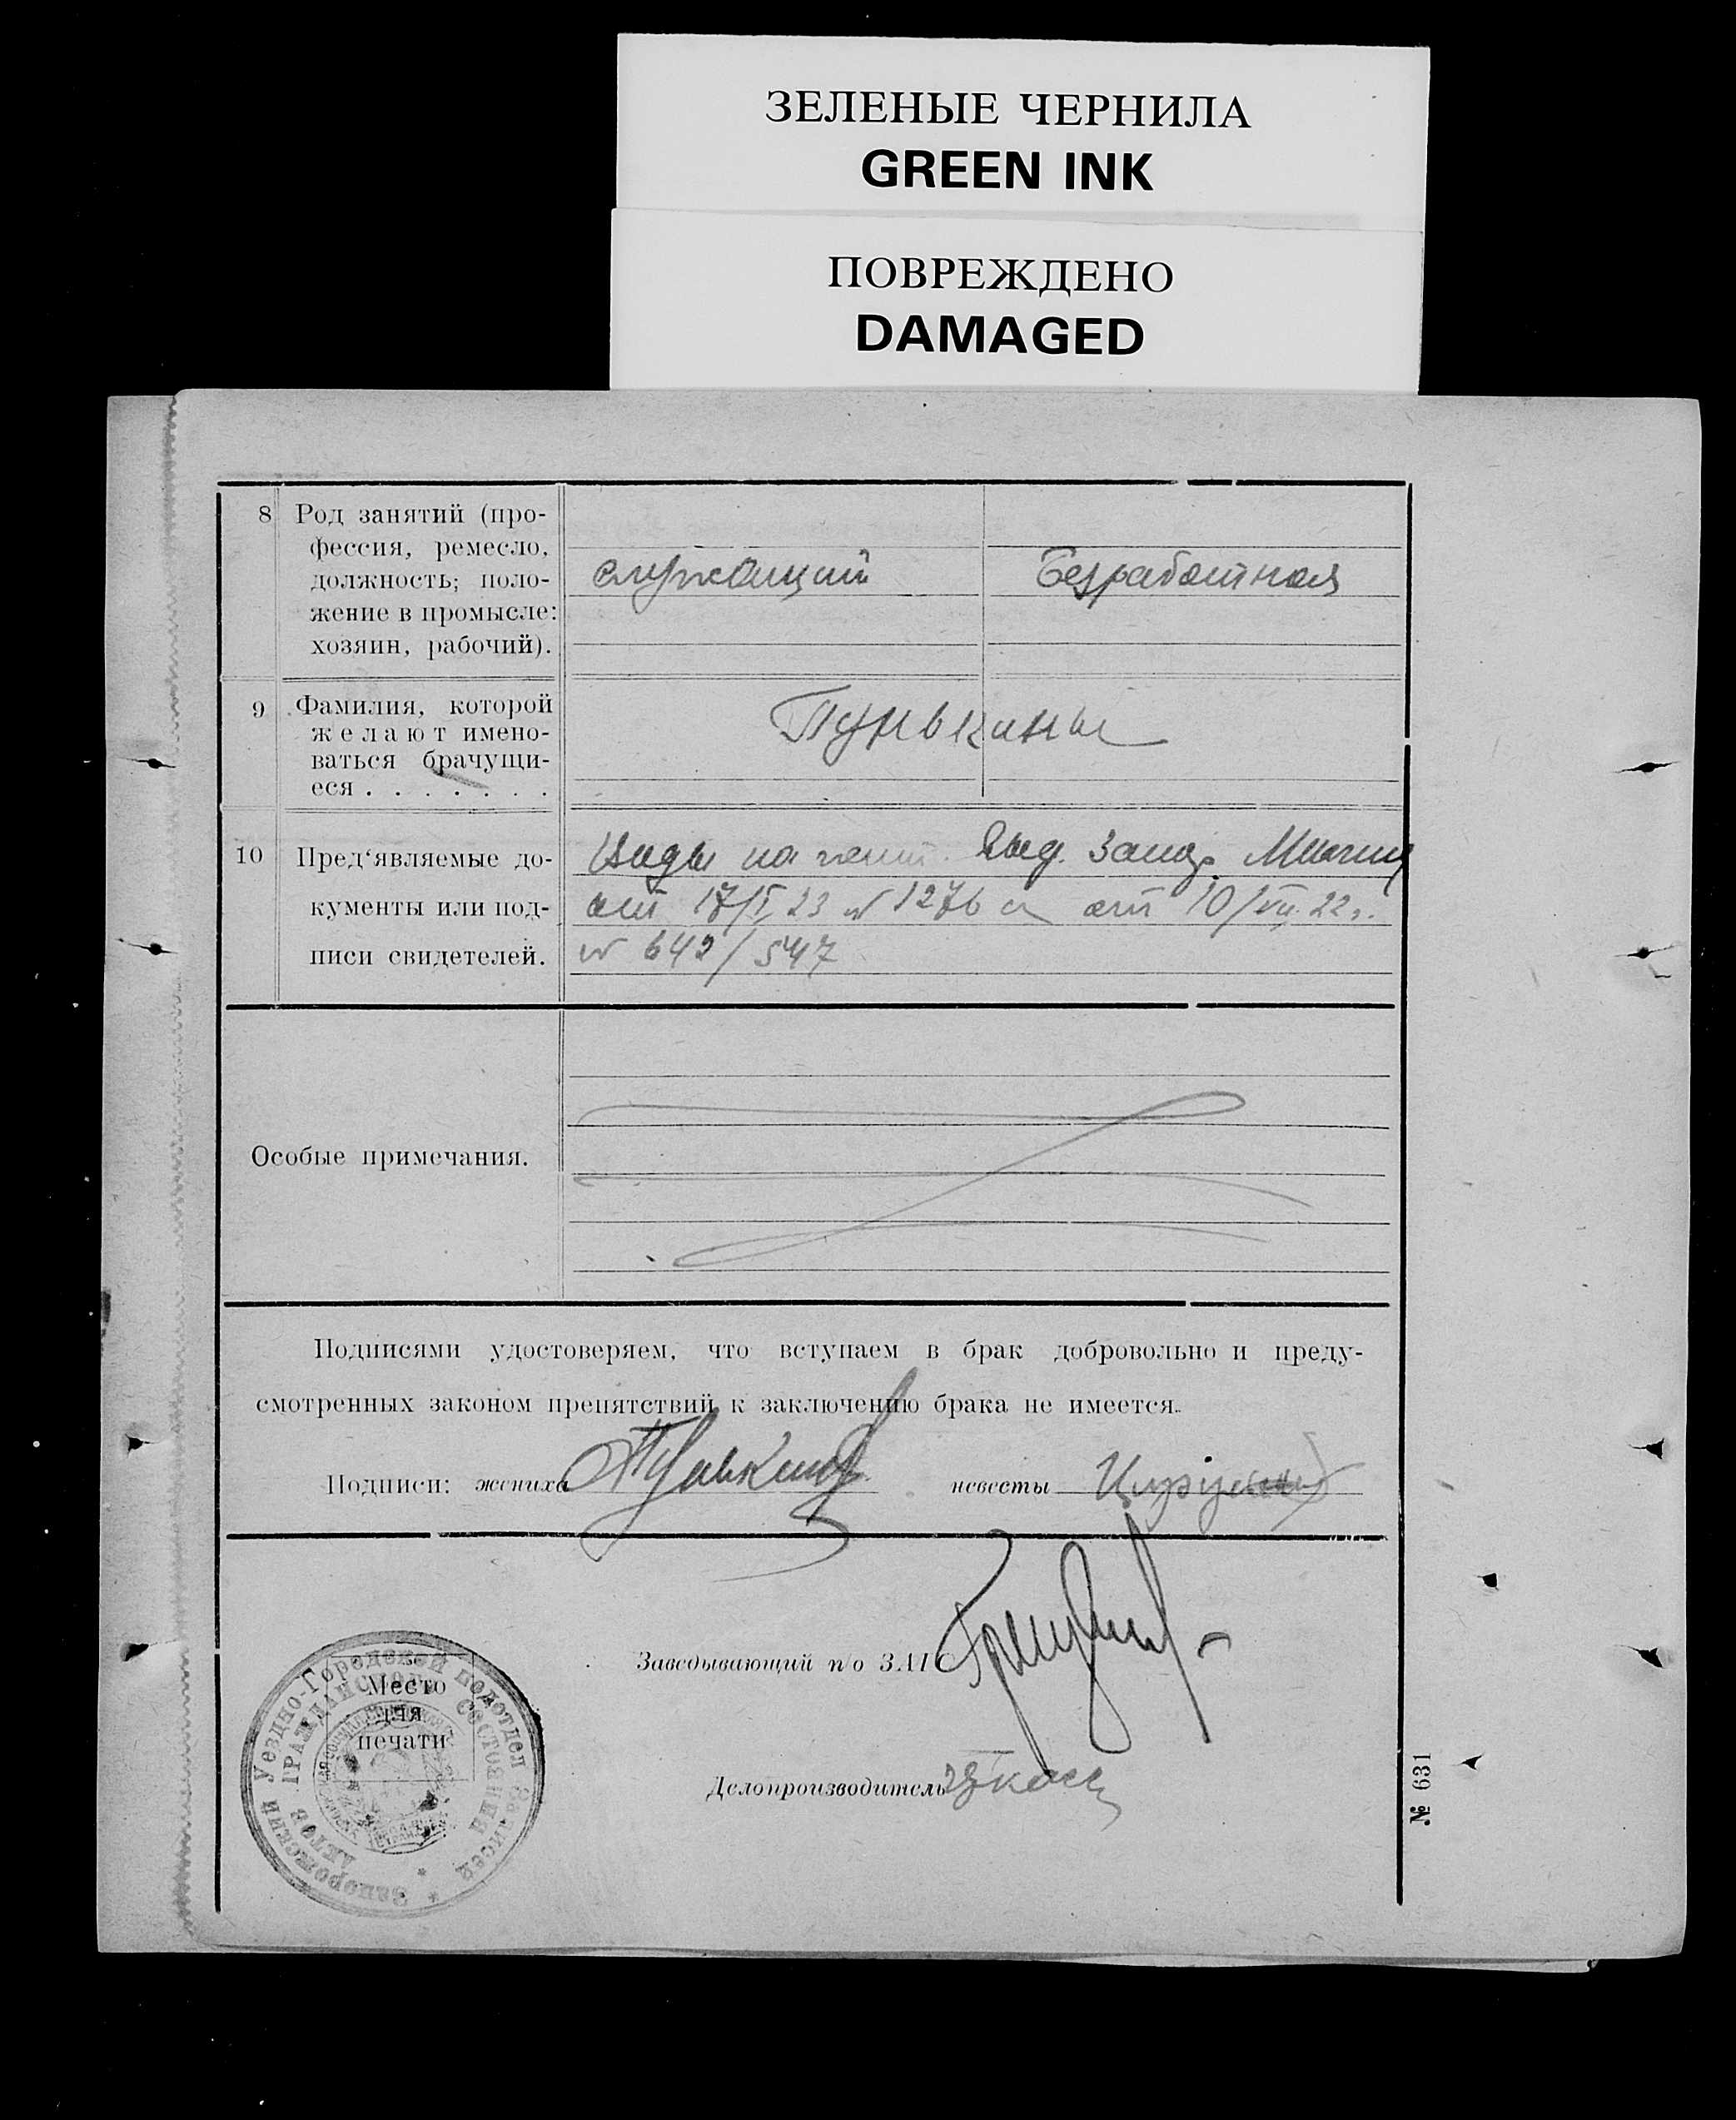 ЗЕЛЕНЫЕ ЧЕРНИЛА
GREEN INK
ПОВРЕЖДЕНО
DAMAGED
8 Род занятий (про-
фессия, ремесло,
должность; поло-
жение в промысле:
хозяин, рабочий).
служащий
Безработная
9 Фамилия, которой
желают имено-
ваться брачущи-
еся . . . . . . .
Пунькины
10 Пред‘являемые до-
кументы или под-
писи свидетелей.
Виды на жит. Выд. Запор. Милиц
от 17/I 23 № 1276 и от 10/VII 22 г.
№ 642/547
Особые примечания.
Подписями удостоверяем, что вступаем в брак добровольно и преду-
смотренных законом препятствий к заключению брака не имеется.
Подписи: жениха невесты
Заведывающий п/о ЗАГС
Делопроизводитель
Место
для
печати
Запорожский Уездно-Городской подотдел Записей
АКТОВ ГРАЖДАНСКОГО СОСТОЯНИЯ
№ 631